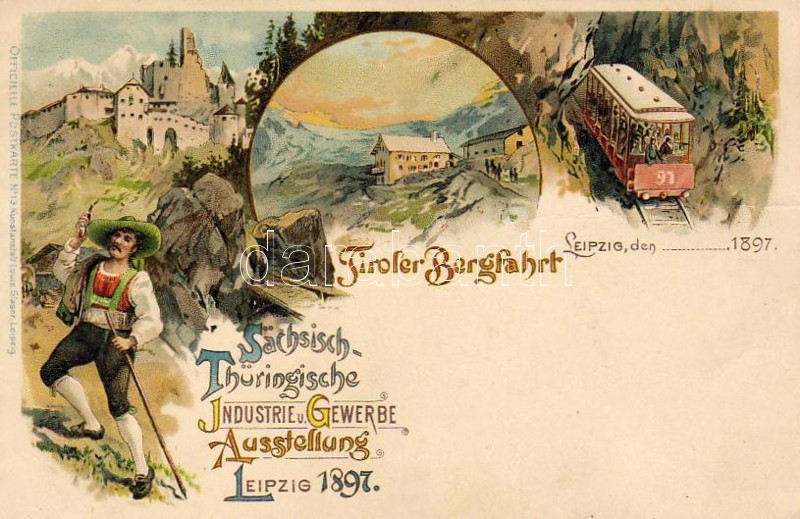 OFFICIELLE POSTKARTE No 13 Kunstanstalt Louis Glaser, Leipzig.
91
Tiroler Bergfahrt
LEIPZIG, den .............. 1897.
darabanth
Sächsisch-
Thüringische
INDUSTRIE u. GEWERBE
Ausstellung
LEIPZIG 1897.